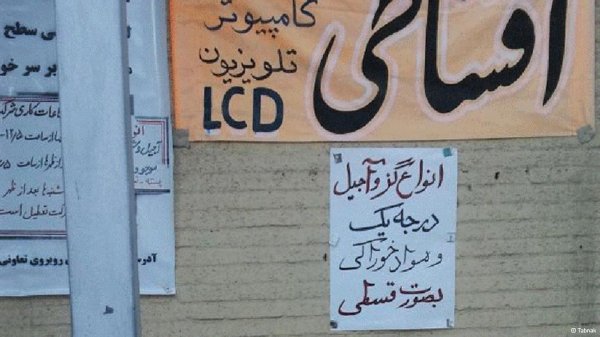 کامپیوتر
تلویزیون
LCD
اقساطی
انواع گز و آجیل
درجه یک
و مواد خوراکی
بصورت قسطی
ی سطح
بر سر خو
اعات کاری شرکت
از ساعت
بعد از ظهر
شرکت تعطیل است
آدرس
روبروی تعاونی
© Tabnak